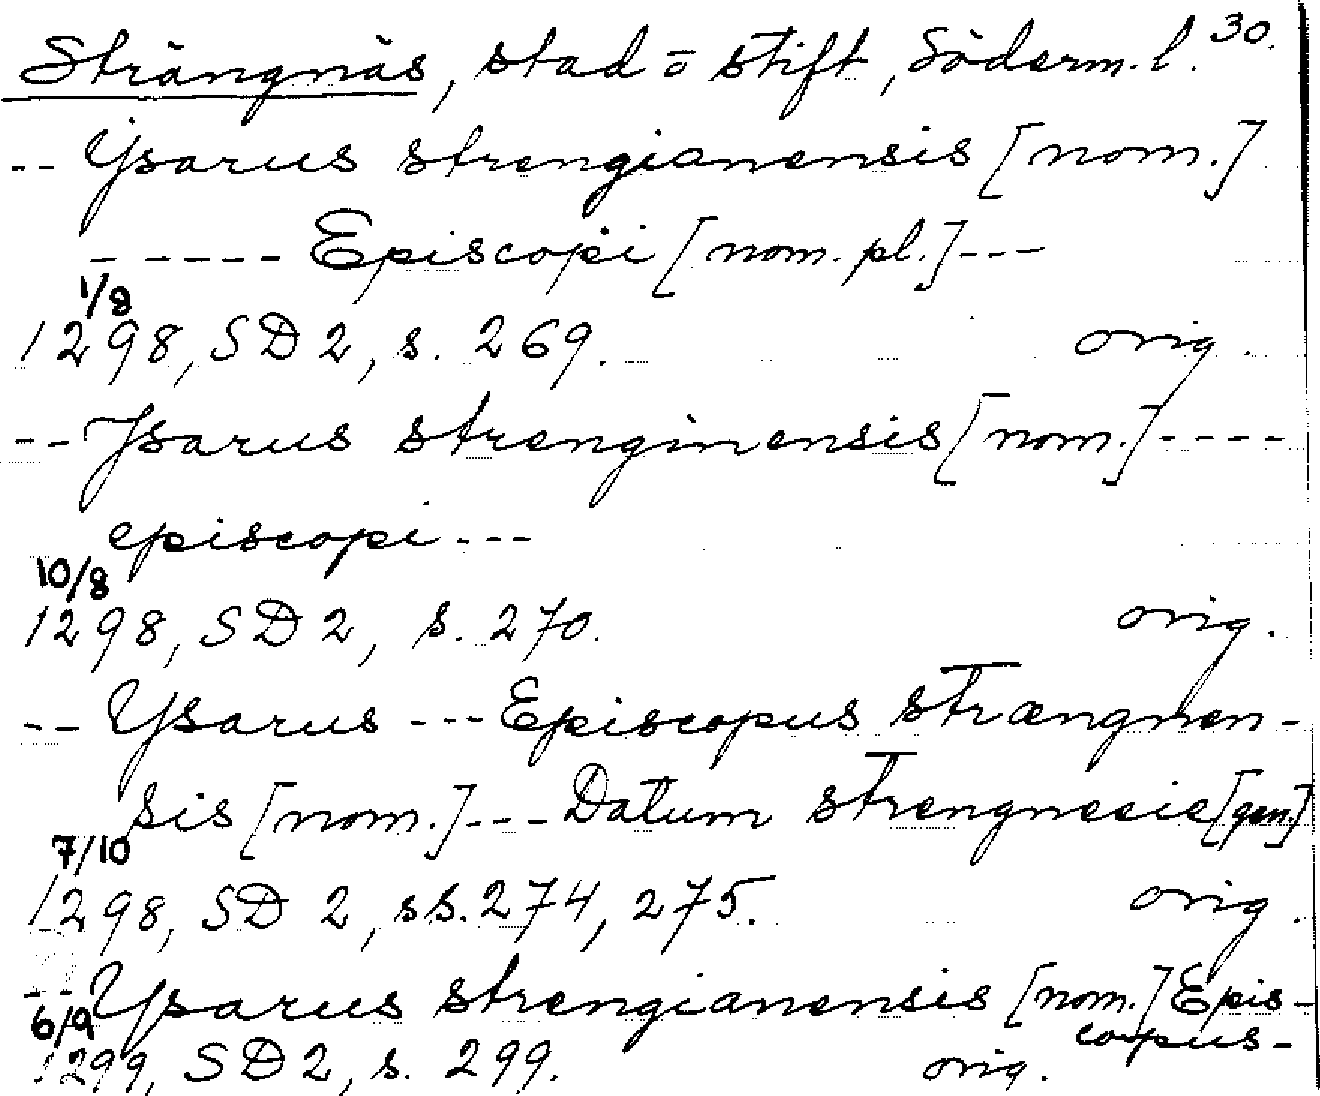 Strängnäs, stad o stift, Söderm. l. 30.
-- Ysarus strengianensis [nom.]
------ Episcopi [nom. pl.] ---
1/8
1298, SD 2, s. 269. orig.
-- Ysarus strenginensis [nom.] ----
episcopi ---
10/8
1298, SD 2, s. 270. orig.
-- Ysarus --- Episcopus strængnen-
sis [nom.] --- Datum strengnesie [gen.]
7/10
1298, SD 2, ss. 274, 275. orig.
-- Ysarus strengianensis [nom.] Epis-
copus-
6/9
1299, SD 2, s. 299. orig.